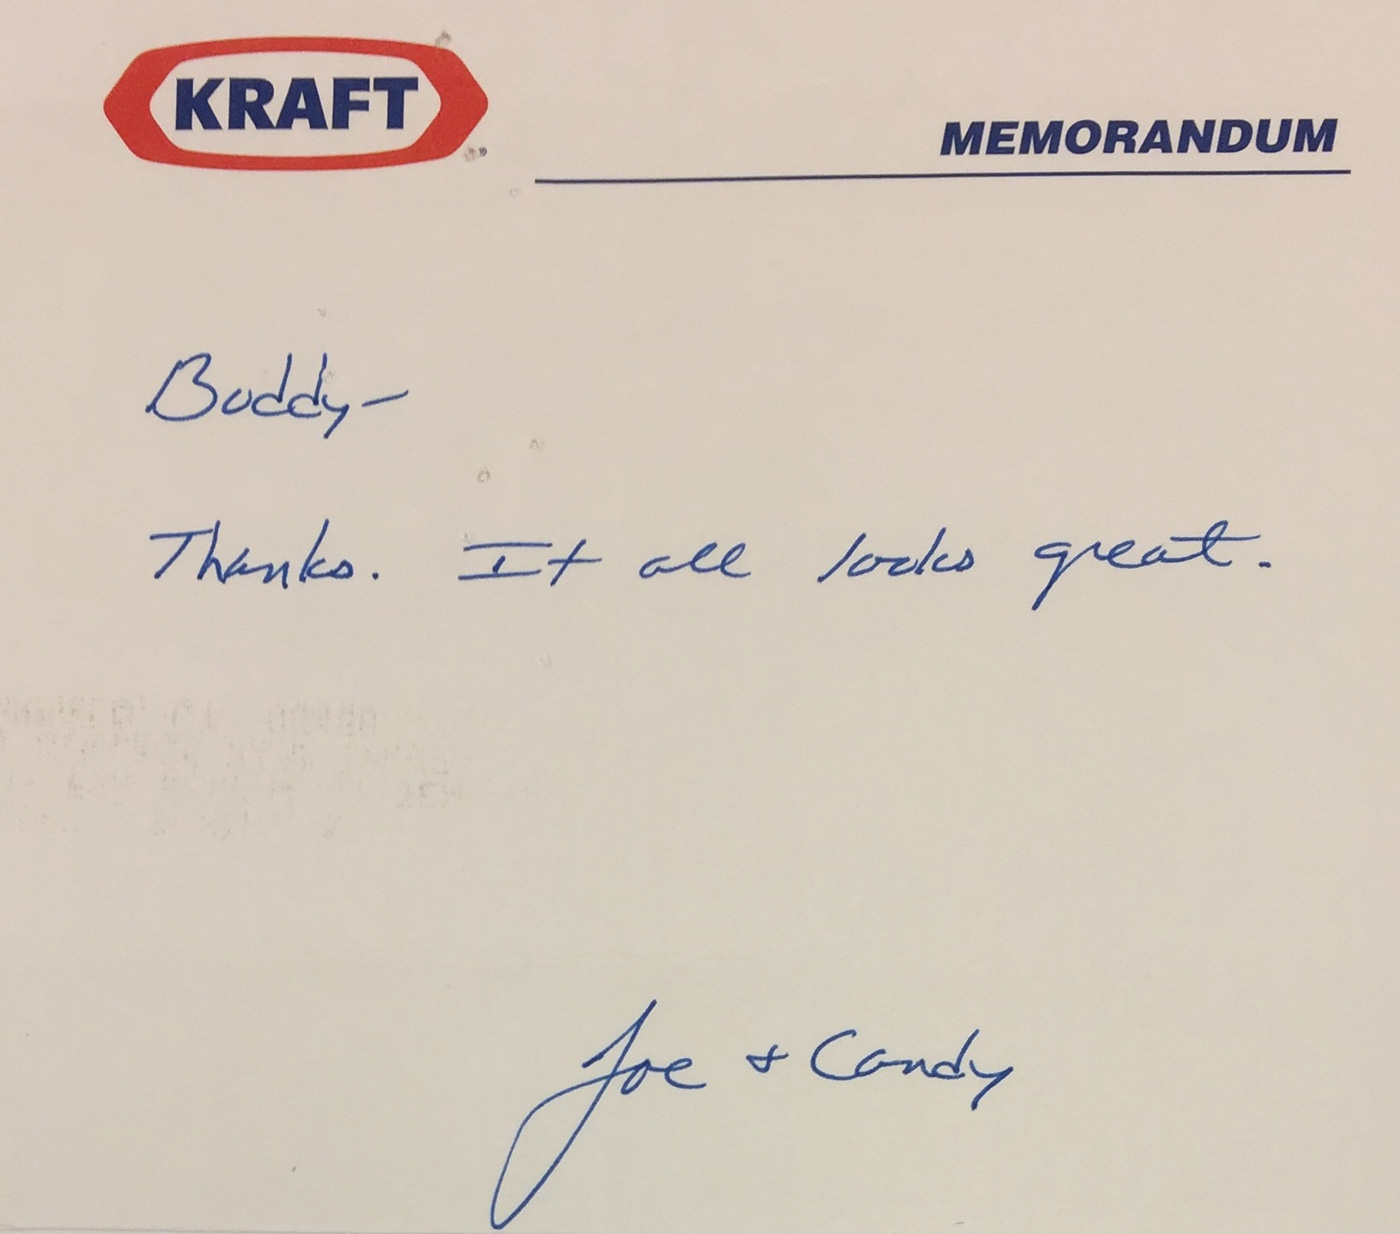 KRAFT
MEMORANDUM
Buddy-
Thanks. It all looks great.
Joe + Candy